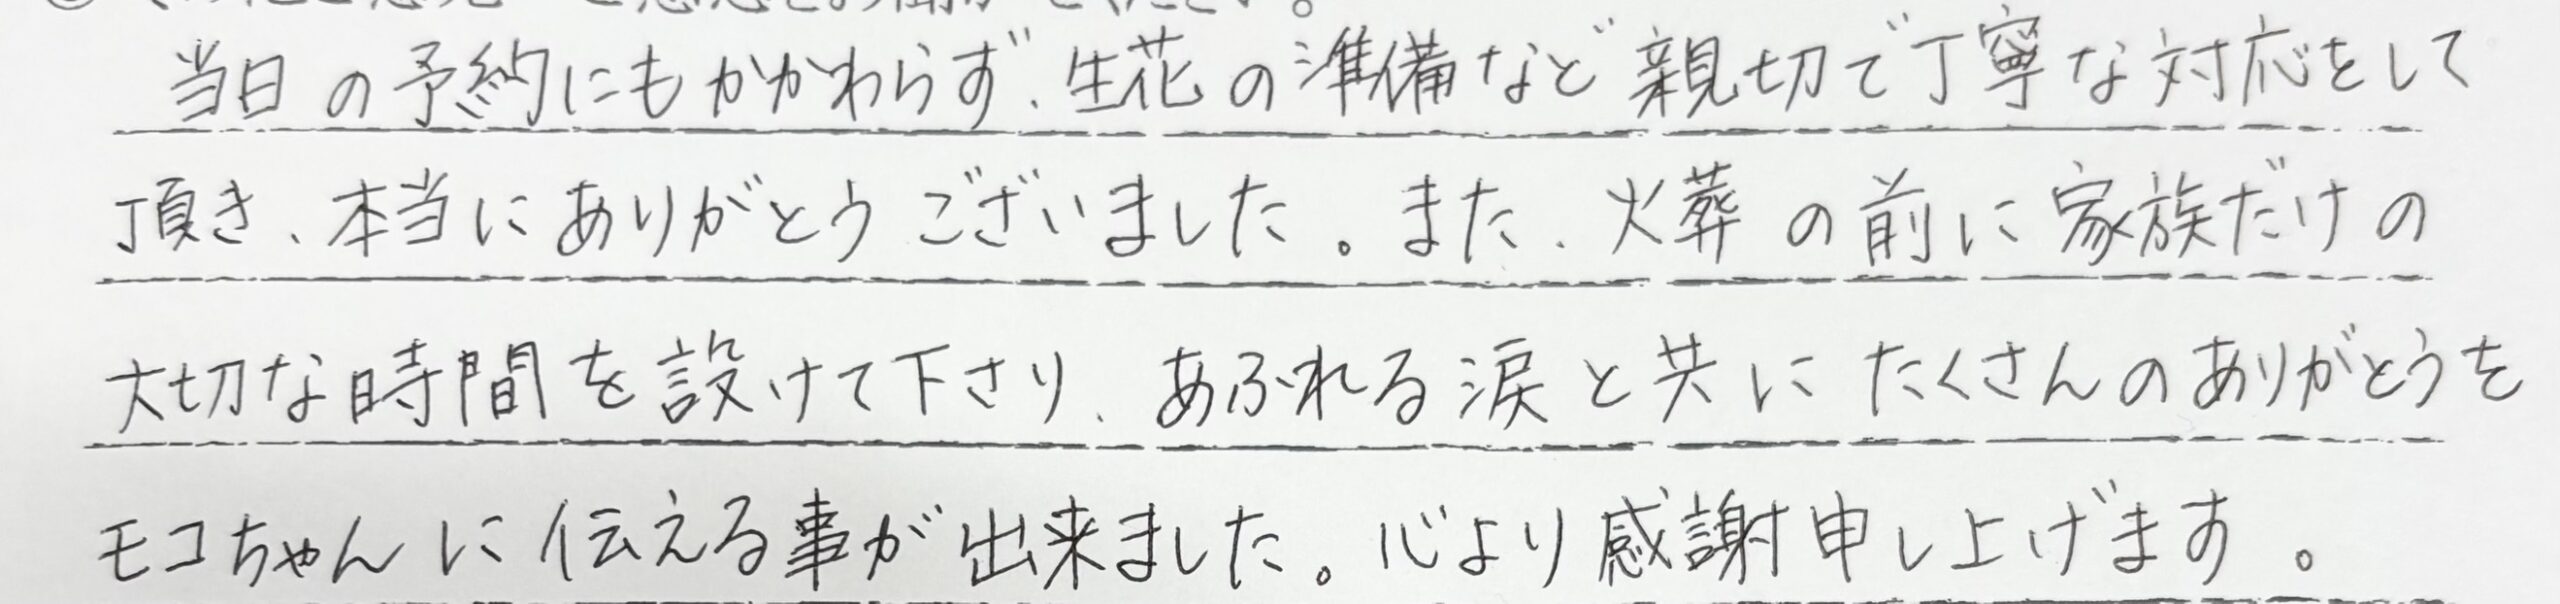 当日の予約にもかかわらず、生花の準備など親切で丁寧な対応をして
頂き、本当にありがとうございました。また、火葬の前に家族だけの
大切な時間を設けて下さり、あふれる涙と共にたくさんのありがとうを
モコちゃんに伝える事が出来ました。心より感謝申し上げます。